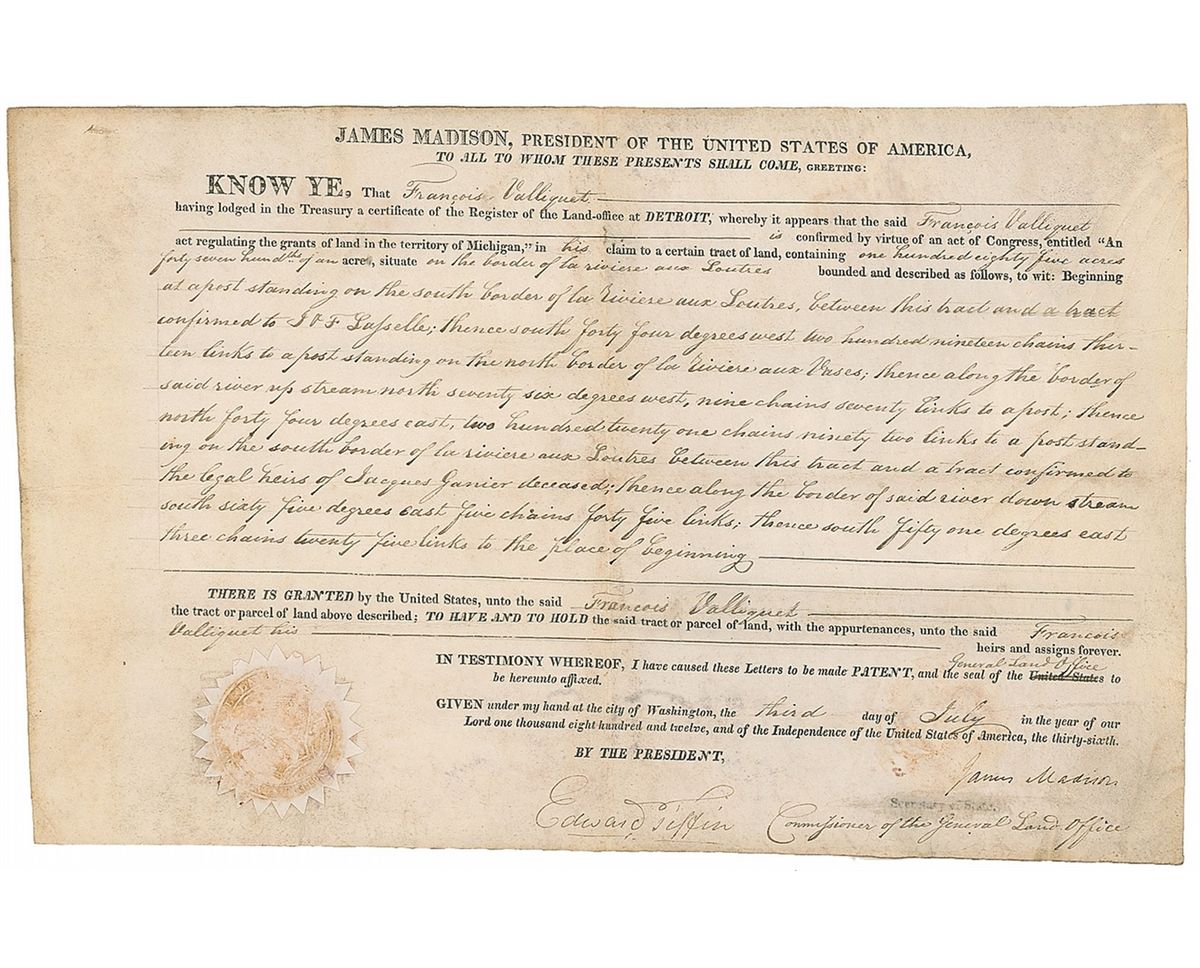 JAMES MADISON, PRESIDENT OF THE UNITED STATES OF AMERICA,
TO ALL TO WHOM THESE PRESENTS SHALL COME, GREETING:
KNOW YE, That François Valliquet
having lodged in the Treasury a certificate of the Register of the Land-office at DETROIT, whereby it appears that the said François Valliquet
is confirmed by virtue of an act of Congress, entitled "An
act regulating the grants of land in the territory of Michigan," in his claim to a certain tract of land, containing one hundred eighty five acres
forty seven hundths of an acre, situate on the border of la riviere aux Loutres bounded and described as follows, to wit: Beginning
at a post standing on the south border of la Riviere aux Loutres, between this tract and a tract
confirmed to J & F Lasselle; thence south forty four degrees west two hundred nineteen chains thir-
teen links to a post standing on the north border of la riviere aux Vases; thence along the border of
said river up stream north seventy six degrees west, nine chains seventy links to a post; thence
north forty four degrees east, two hundred twenty one chains ninety two links to a post stand-
ing on the south border of la riviere aux Loutres between this tract and a tract confirmed to
the legal heirs of Jacques Ganier deceased; thence along the border of said river down stream
south sixty five degrees east five chains forty five links; thence south fifty one degrees east
three chains twenty five links to the place of beginning
THERE IS GRANTED by the United States, unto the said François Valliquet
the tract or parcel of land above described; TO HAVE AND TO HOLD the said tract or parcel of land, with the appurtenances, unto the said Francois
Valliquet his heirs and assigns forever.
IN TESTIMONY WHEREOF, I have caused these Letters to be made PATENT, and the seal of the General Land Office United States to
be hereunto affixed.
GIVEN under my hand at the city of Washington, the third day of July in the year of our
Lord one thousand eight hundred and twelve, and of the Independence of the United States of America, the thirty-sixth.
BY THE PRESIDENT,
James Madison
Secretary of State.
Edward Tiffin Commissioner of the General Land Office